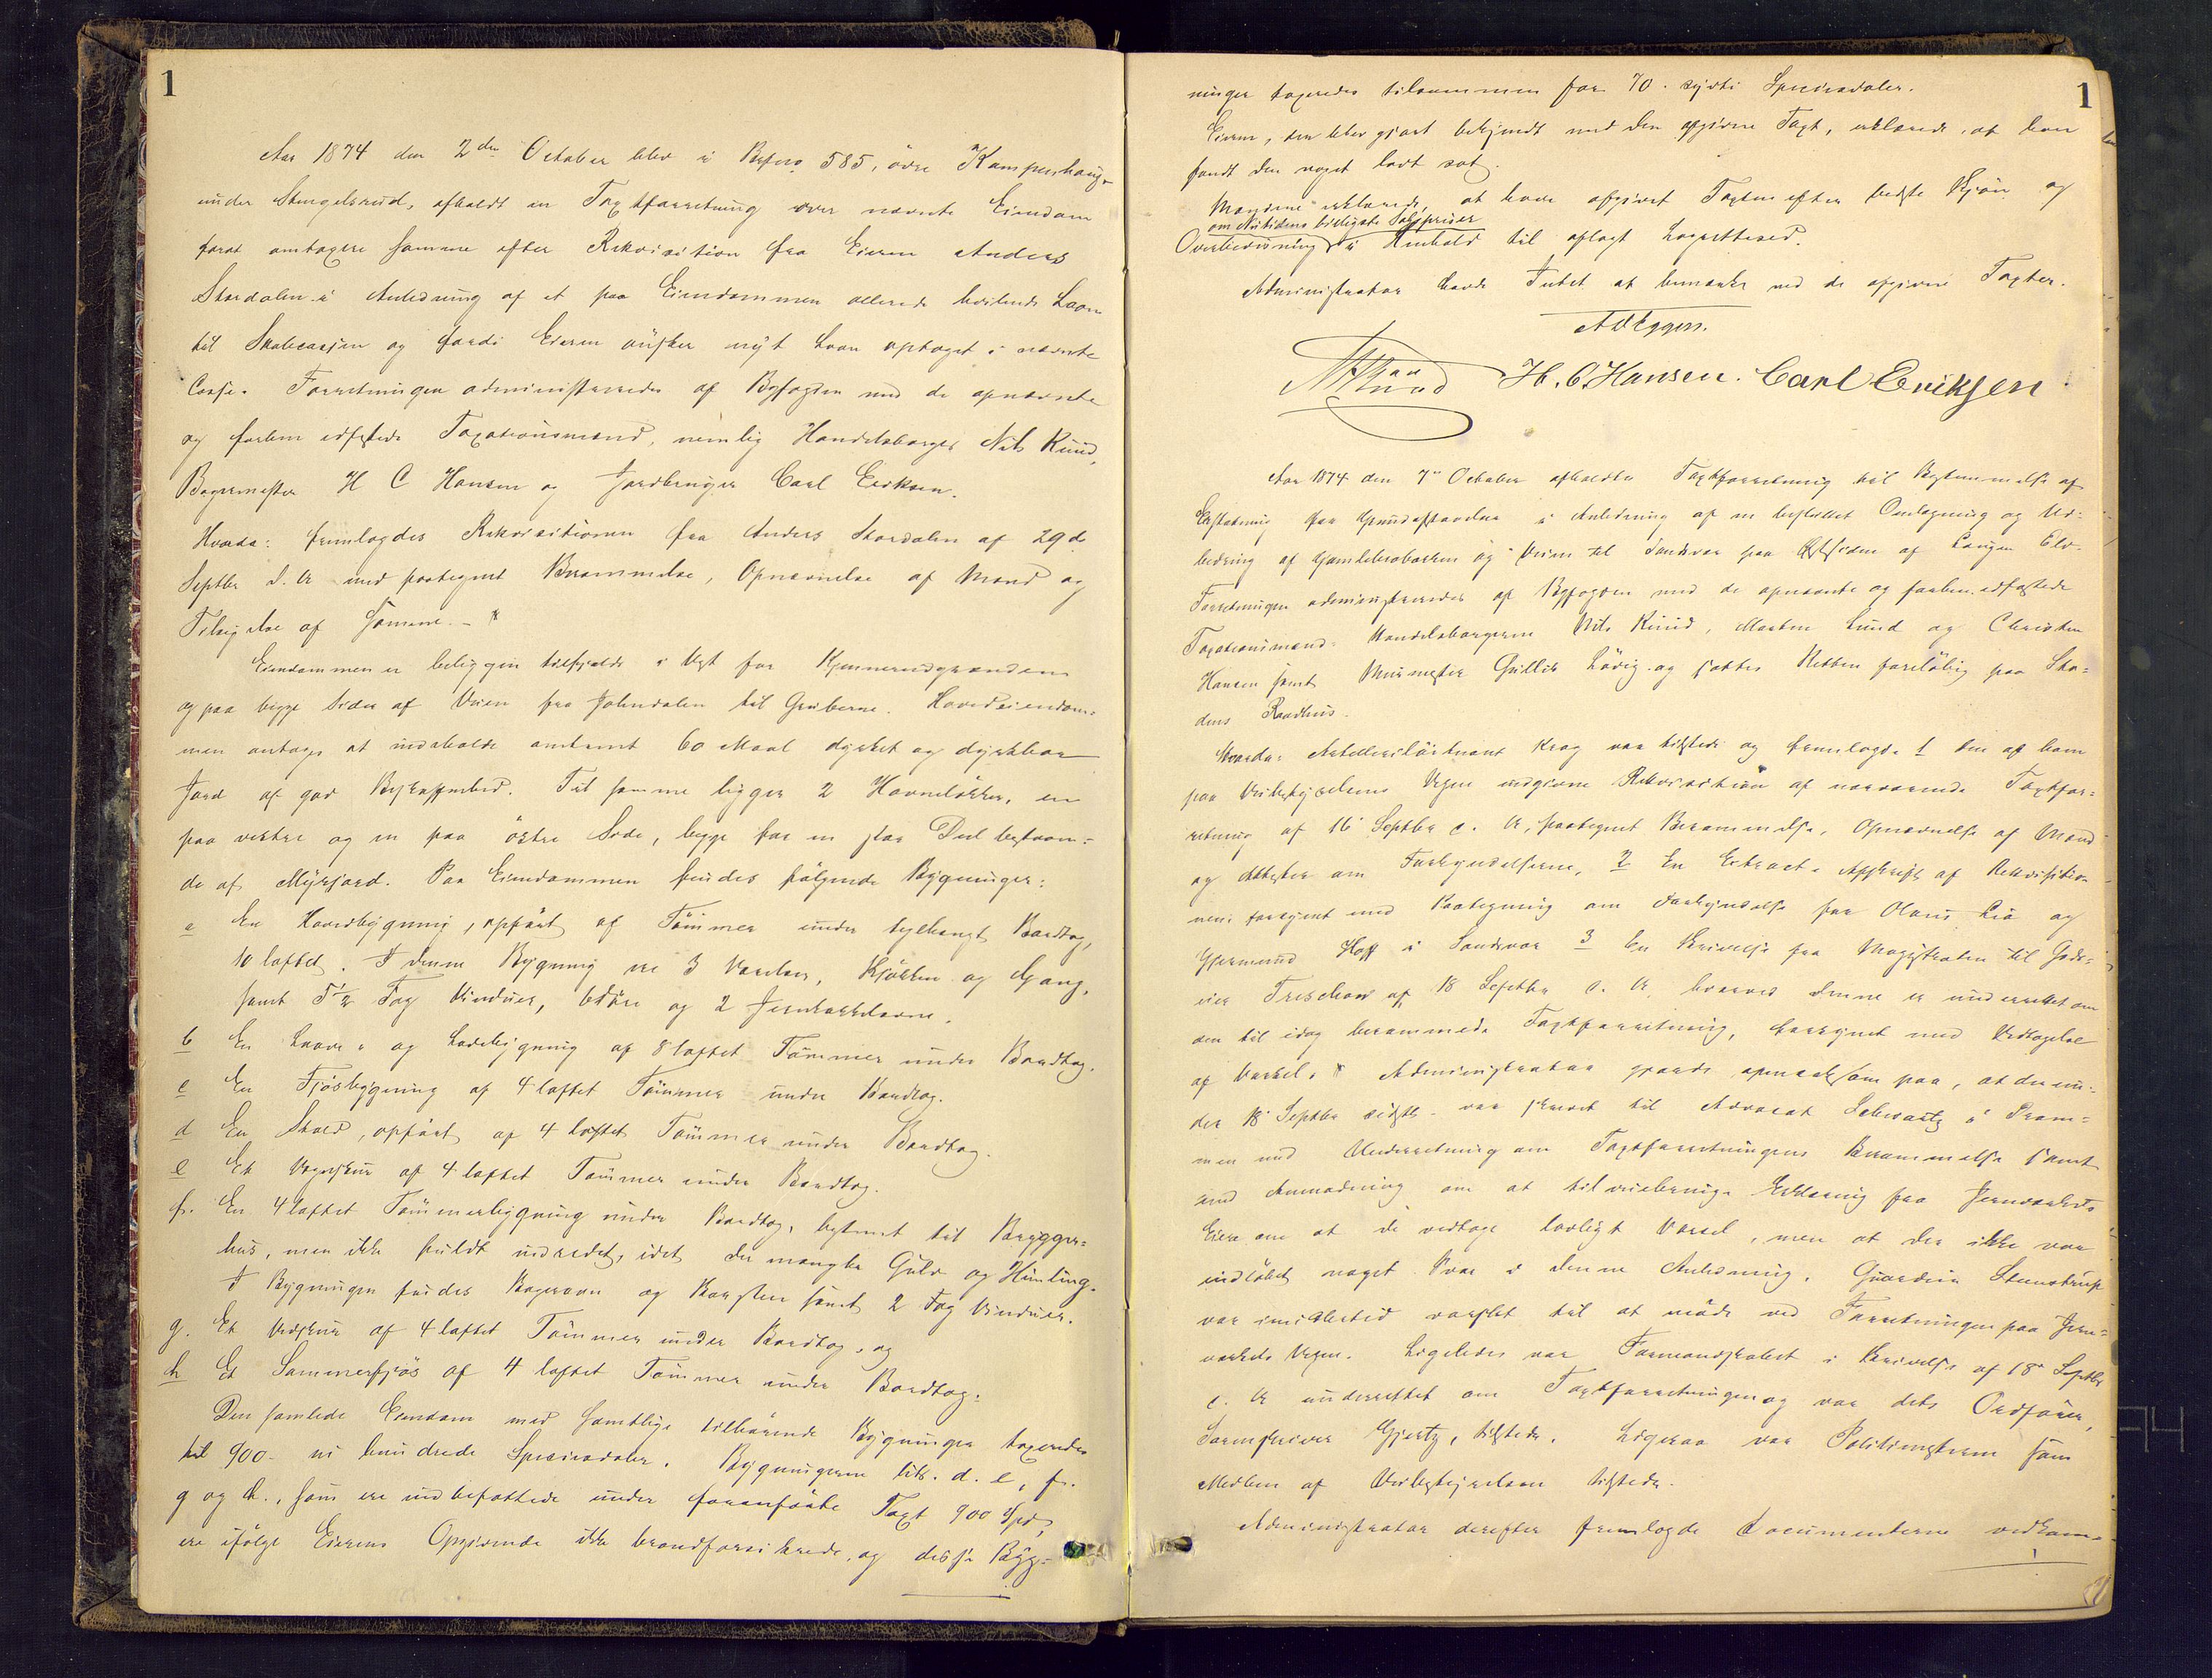 1
Aar 1874 den 2den October blev i Byens No 585, övre Kampenhaug
under Stengelsrud, afholdt en Taxtforretning over nævnte Eiendom
forat omtaxere samme efter Rekvisition fra Eieren Anders
Stordalen i Anledning af et paa Eiendommen allerede heftende Laan
til Statscassen og fordi Eieren önsker nyt Laan optaget i nævnte
Casse. Forretningen administreredes af Byfogden med de opnævnte
og forhen edfæstede Taxationsmænd, nemlig Handelsborger Nils Ruud,
Bagermester H C Hansen og Jordbruger Carl Eriksen.
Hvorda: fremlagdes Rekvisitionen fra Anders Stordalen af 29de
Septbr d. A. med paategnet Berammelse, Opnævnelse af Mænd og
Tilsigelse af samme.
Eiendommen er beliggende tilfjelds i Vest for Kjennerudgrænden
og paa begge Sider af Veien fra Johndalen til Gruberne. Hovedeiendom-
men antages at indeholde omtrent 60 Maal dyrket og dyrkbar
Jord af god Beskaffenhed. Til samme ligger 2 Havneløkker, en
paa vestre og en paa östre Side, begge for en stor Deel bestaaen-
de af Myrjord. Paa Eiendommen findes fölgende Bygninger:
a En Hovedbygning, opfört af Tömmer under tegltængt Bordtag,
10 laftet. I denne Bygning ere 3 Værelser, Kjökken og Gang,
samt 5½ Fag Vinduer, 6 Döre og 2 Jernkakkelovne.
b En Laave- og Ladebygning af 8 laftet Tömmer under Bordtag.
c En Fjösbygning af 4 laftet Tömmer under Bordtag.
d En Stald, opfört af 4 laftet Tömmer under Bordtag.
e Et Vognskur af 4 laftet Tömmer under Bordtag.
f. En 4 laftet Tömmerbygning under Bordtag, bestemt til Brygger-
hus, men ikke fuldt indredet, idet der mangler Gulv og Himling.
I Bygningen findes Bagerovn og Skorsten samt 2 Fag Vinduer.
g. Et Vedskur af 4 laftet Tömmer under Bordtag, og
h Et Sommerfjös af 4 laftet Tömmer under Bordtag.
Den samlede Eiendom med samtlige tilhörende Bygninger taxeredes
til 900 - ni hundrede Speciedaler. Bygningerne litr. d. e, f.
g og h., som ere indbefattede under foranförte Taxt 900 Spd,
ere ifölge Eierens Opgivende ikke brandforsikrede, og disse Byg-
1
ninger taxeredes tilsammen for 70 - sytti Speciedaler.
Eieren, som blev gjort bekjendt med den afgivne Taxt, erklærede, at han
fandt den noget lavt sat.
Mændene erklærede, at have afgivet Taxten efter bedste Skjön og
om Nutidens billigste Salgspriser
Overbevisning i Henhold til aflagt Lagretteed.
Administrator havde Intet at bemærke ved de afgivne Taxter.
A Eggers.
N Ruud H. C. Hansen. Carl Eriksen.
Aar 1874 den 7de October afholdtes Taxtforretning til Bestemmelse af
Erstatning for Grundafstaaelse i Anledning af en besluttet Omlægning og Ud-
bedring af Gamlebrobakken og Veien til Sandsvær paa Østsiden af Laugen Elv.
Forretningen administreredes af Byfogden med de opnævnte og forhen edfæstede
Taxationsmænd: Handelsborgerne Nils Ruud, Morten Lund og Christen
Hansen samt Murmester Gullik Lövig og sattes Retten foreløbig paa Sta-
dens Raadhus.
Hvorda: Artillerilöitnant Krag var tilstede og fremlagde 1 den af ham
paa Veibestyrelsens Vegne indgivne Rekvisition af nærværende Taxtfor-
retning af 16 Septbr d. A., paategnet Berammelse, Opnævnelse af Mænd
og Attester om Forkyndelserne, 2 En Extract-Afskrift af Rekvisitio-
nen, forsynet med Paategning om Forkyndelse for Olaus Lia og
Gjermund Hoff i Sandsvær 3 En Skrivelse fra Magistraten til Gods-
eier Treschow af 18 Septbr d. A. hvorved denne er underrettet om
den til idag berammede Taxtforretning, forsynet med Vedtagelse
af Varsel. Administrator gjorde opmærksom paa, at der un-
der 18 Septbr sidstl. var skrevet til Advocat Schwartz i Dram-
men med Underretning om Taxtforretningens Berammelse samt
med Anmodning om at tilveiebringe Erklæring fra Jernværkets
Eiere om at de vedtage lovligt Varsel, men at der ikke var
indløbet noget Svar i denne Anledning. Guardein Steenstrup
var imidlertid varslet til at möde ved Forretningen paa Jern-
værkets Vegne. Ligeledes var Formandskabet i Skrivelse af 18de Septbr
d. A. underrettet om Taxtforretningen og var dets Ordförer,
Sorenskriver Gjertz, tilstede. Ligesaa var Politimesteren som
Medlem af Veibestyrelsen tilstede.
Administrator derefter fremlagde Documenterne vedkom-